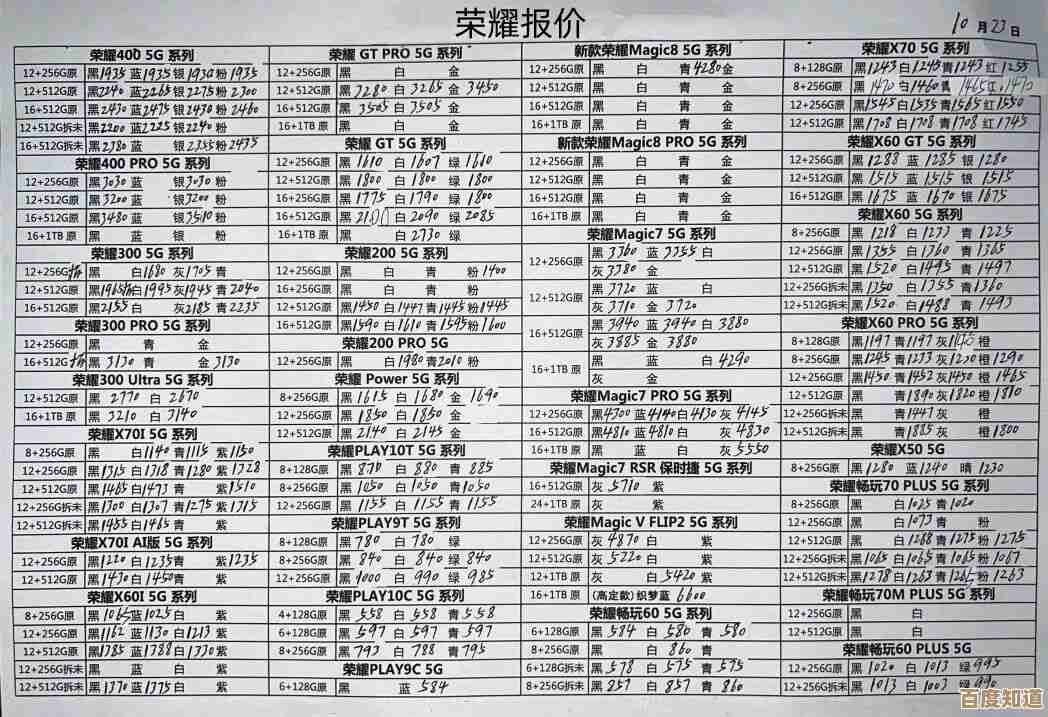 荣耀报价
10月23日
荣耀400 5G 系列
12+256G原 黑1935 蓝1935 银1930 粉1935
12+512G原 黑2240 蓝2265 银2275 粉2300
16+512G原 黑2430 蓝2475 银2430 粉2460
12+512G拆未 黑2200 蓝2225 银2240 粉
16+512G拆未 黑2380 蓝 银2355 粉2435
荣耀400 PRO 5G 系列
12+256G原 黑3030 蓝 银3030 粉
12+512G原 黑3200 蓝 银3200 粉
16+512G原 黑3480 蓝 银3510 粉
16+1TB 原 黑 蓝 银 粉
荣耀300 5G 系列
12+256G拆 黑 白1680 灰1705 青
12+512G原 黑1965拆白1995 灰1945 青2040
16+512G原 黑2155 灰2185 青2235
荣耀300 PRO 5G 系列
12+256G原 黑 青 金
16+512G拆 黑 3130 青 金 3130
荣耀300 Ultra 5G 系列
12+512G原 黑 2770 白 2670
16+1TB 原 黑 3210 白 3140
荣耀X70I 5G 系列
8+256G原 黑 白1140 青1115 紫1150
12+256G原 黑1315 白1318 青1280 紫1328
12+512G原 黑1465 白1473 青 紫1510
12+256G拆未 黑1300 白1307 青1275 紫1315
12+512G拆未 黑1455 白1465 青 紫
荣耀X70I AI版 5G 系列
12+256G原 黑1220 白1235 青 紫1235
12+512G原 黑1430 白1450 青 紫
荣耀X60I 5G 系列
8+256G原 黑1065 蓝1025 白 紫
12+256G原 黑1162 蓝1130 白1213 紫
12+512G原 黑1385 蓝1388 白1330 紫
12+256G拆未 黑 蓝 白 紫
12+512G拆未 黑1370 蓝1375 白 紫
荣耀 GT PRO 5G 系列
12+256G原 黑 白 金
12+512G原 黑 3280 白 3265 金 3450
16+512G原 黑 3505 白 3505 金
16+1TB 原 黑 白 金
荣耀 GT 5G 系列
12+256G原 黑 1610 白 1607 绿 1610
12+512G原 黑 1800 白 1800 绿 1800
16+256G原 黑 1775 白 1790 绿 1800
16+512G原 黑 白 2090 绿 2085
16+1TB 原 黑 白 2730 绿
荣耀200 5G 系列
12+256G原 黑 白 青 粉 1400
16+256G原 黑 白 青 粉
12+512G原 黑1450 白1447 青1445 粉1445
16+512G原 黑1590 白1610 青1595 粉1600
荣耀200 PRO 5G
12+256G原 黑 白1980 青2010 粉
荣耀 Power 5G 系列
8+256G原 黑 1615 白 1680 金 1690
12+256G原 黑 1850 白 1850 金
12+512G原 黑 2140 白 2145 金
荣耀PLAY10T 5G 系列
8+128G原 黑 870 白 880 青 885
8+256G原 黑 1050 白 1050 青1050
12+256G原 黑 1155 白 1155 青 1155
荣耀PLAY9T 5G 系列
8+128G原 黑 780 白 780 绿
8+256G原 黑 840 白 840 绿 840
12+256G原 黑 1000 白 990 绿 985
荣耀PLAY10C 5G 系列
4+128G原 黑 558 白 558 青 558
6+128G原 黑 597 白 597 青 597
8+256G原 黑 793 白 788 青 795
荣耀PLAY9C 5G
6+128G原 黑 蓝 584
新款荣耀Magic8 5G 系列
12+256G原 黑 白 青4280金
12+512G原 黑 白 青 金
16+512G原 黑 白 青 金
16+1TB 原 黑 白 青 金
新款荣耀Magic8 PRO 5G 系列
12+256G原 黑 白 青 金
12+512G原 黑 白 青 金
16+512G原 黑 白 青 金
16+1TB 原 黑 白 青 金
荣耀Magic7 5G 系列
12+256G原 黑 3360 蓝 3355 白
灰 3380 金
12+512G原 黑 3720 蓝 白
灰 3710 金 3720
16+512G原 黑 3940 蓝 3940 白 3880
灰 3885 金 3880
16+1TB 原 黑 蓝 白 4290
灰 金
荣耀Magic7 PRO 5G 系列
12+256G原 黑4300 蓝4140 白4130 灰 4145
16+512G原 黑4810 蓝4810 白 灰 4830
16+1TB 原 黑 蓝 白 灰 5550
荣耀Magic7 RSR 保时捷 5G 系列
16+512G原 灰 5710 紫
24+1TB 原 灰 紫
荣耀Magic V FLIP2 5G 系列
12+256G原 灰 4870 白 紫
12+512G原 灰 5220 白 紫
12+1TB 原 灰 白 5420 紫
16+1TB 原 (高定款) 织梦蓝 6600
荣耀畅玩60 5G 系列
6+128G原 黑 584 白 580 青 580
8+256G原 黑 白 860 青
6+128G拆未 黑 578 白 575 青 575
8+256G拆未 黑 857 白 857 青 860
荣耀X70 5G 系列
8+128G原 黑1243 白1245 青1243 红1255
8+256G原 黑1470 白1460 青1465 红1470
12+256G原 黑1545 白1535 青1565 红1550
12+512G原 黑1708 白1708 青1708 红1745
荣耀X60 GT 5G 系列
12+256G原 黑 1288 蓝 1285 银 1280
12+512G原 黑 1515 蓝 1515 银 1515
16+512G原 黑 1675 蓝 1670 银 1675
荣耀X60 5G 系列
8+256G原 黑 1218 白 1233 青 1225
12+256G原 黑 1355 白 1360 青 1365
12+512G原 黑 1520 白 1495 青 1497
12+256G拆未 黑 1350 白 1355 青1360
12+512G拆未 黑 1520 白 1488 青 1493
荣耀X60 PRO 5G 系列
8+128G原 黑1197 青1197 灰 橙
8+256G原 黑1245 青1233 灰1230 橙1290
12+256G原 黑1450 青1452 灰1450 橙 1465
12+512G原 黑 青1890 灰1820 橙 1810
12+256G拆未 黑 青1447 灰 橙
12+512G拆未 黑 青1885 灰 橙1800
荣耀X50 5G
8+256G原 黑 1280 蓝 1240 晴 1230
荣耀畅玩70 PLUS 5G 系列
8+256G原 黑 白 1025 青1020
12+256G原 黑 白 1073 青 粉
12+512G原 黑 白 1268 青1275 粉 1275
12+256G拆未 黑1065 白1065 青1065 粉1067
12+512G拆未 黑1278 白1263 青1265 粉1263
荣耀畅玩70M PLUS 5G 系列
12+256G原 黑 白
12+512G原 黑 白
荣耀畅玩60 PLUS 5G
12+256G原 黑 1020 白 1013 绿 995
12+256G拆未 黑 1013 白 1003 绿 990
百度知道